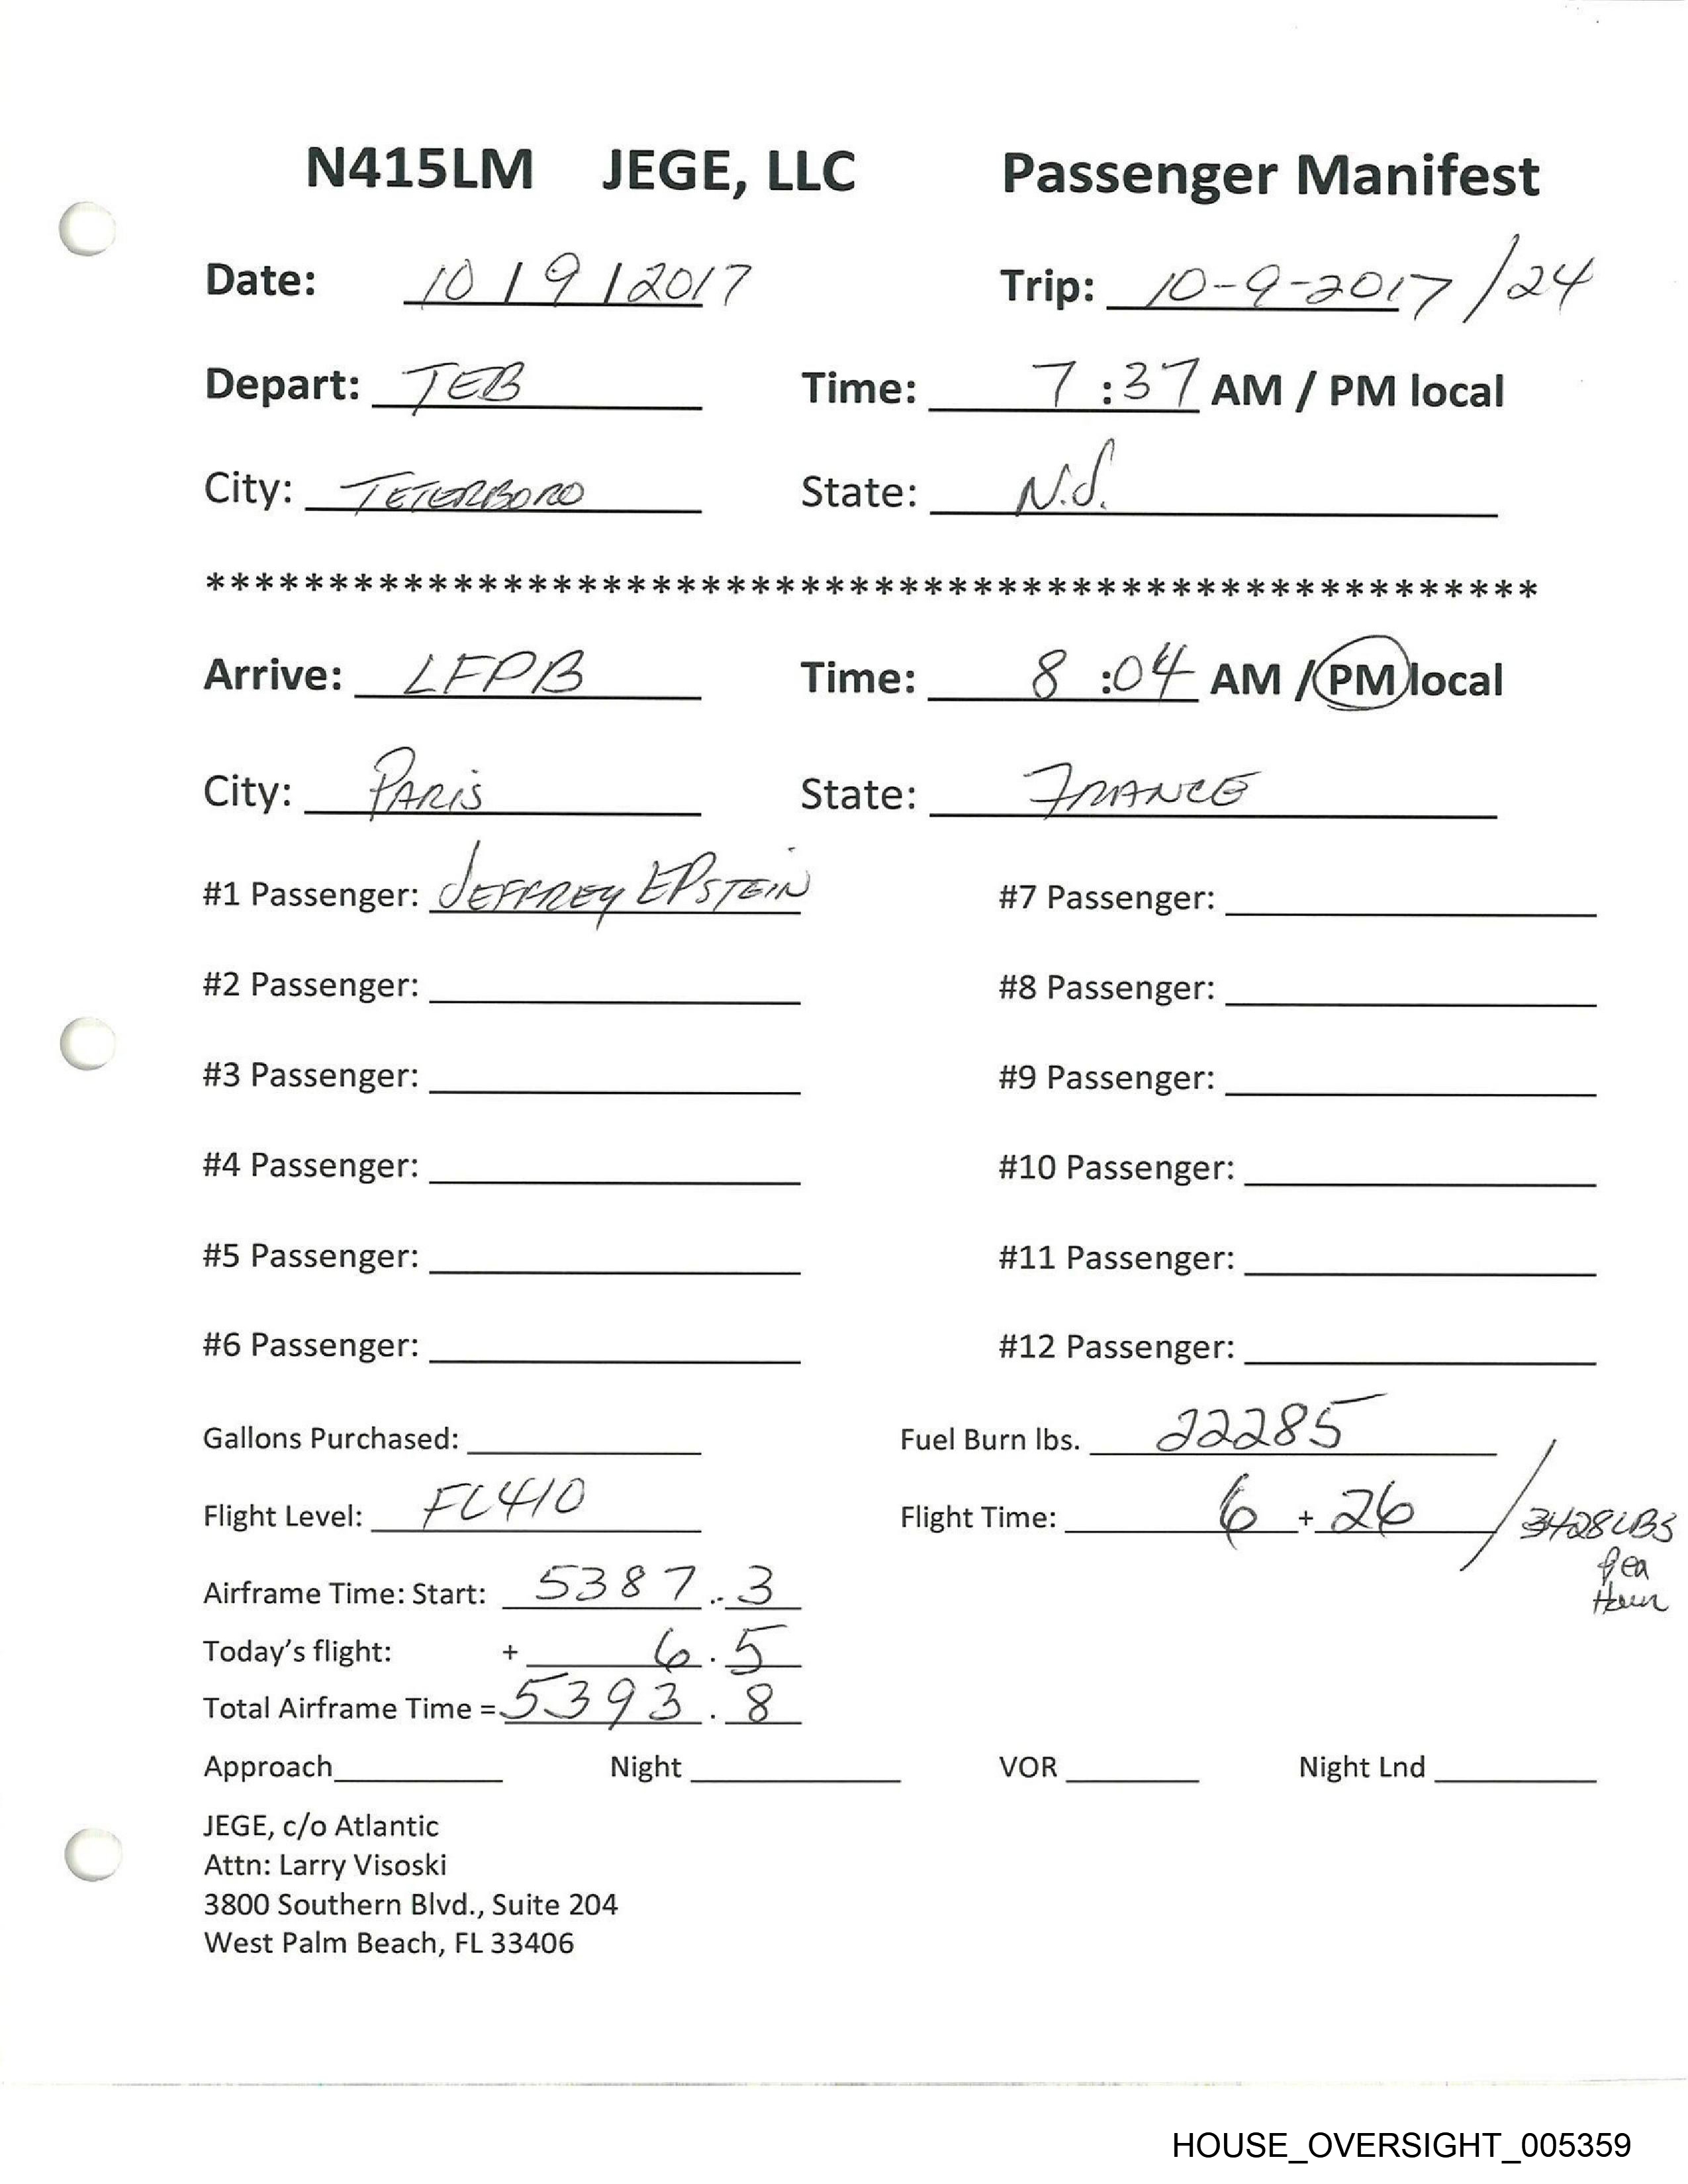 N415LM JEGE, LLC Passenger Manifest
Date: 10 / 9 / 2017 Trip: 10-9-2017 /24
Depart: TEB Time: 7:37 AM / PM local
City: TETERBORO State: N.J.
******************************************************
Arrive: LFPB Time: 8:04 AM / PM local
City: PARIS State: FRANCE
#1 Passenger: JEFFREY EPSTEIN #7 Passenger:
#2 Passenger: #8 Passenger:
#3 Passenger: #9 Passenger:
#4 Passenger: #10 Passenger:
#5 Passenger: #11 Passenger:
#6 Passenger: #12 Passenger:
Gallons Purchased: Fuel Burn lbs. 22285
Flight Level: FL410 Flight Time: 6 + 26 / 3428 LBS
per
Hour
Airframe Time: Start: 5387.3
Today's flight: + 6.5
Total Airframe Time = 5393.8
Approach Night VOR Night Lnd
JEGE, c/o Atlantic
Attn: Larry Visoski
3800 Southern Blvd., Suite 204
West Palm Beach, FL 33406
HOUSE_OVERSIGHT_005359